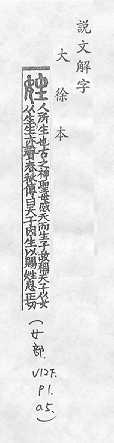 説文解字
大徐本
姓 人所生也古之神聖母感天而生子故稱天子从女
从生生亦聲春秋傳曰天子因生以賜姓息正切
(女部. V12下. P1. a5.)